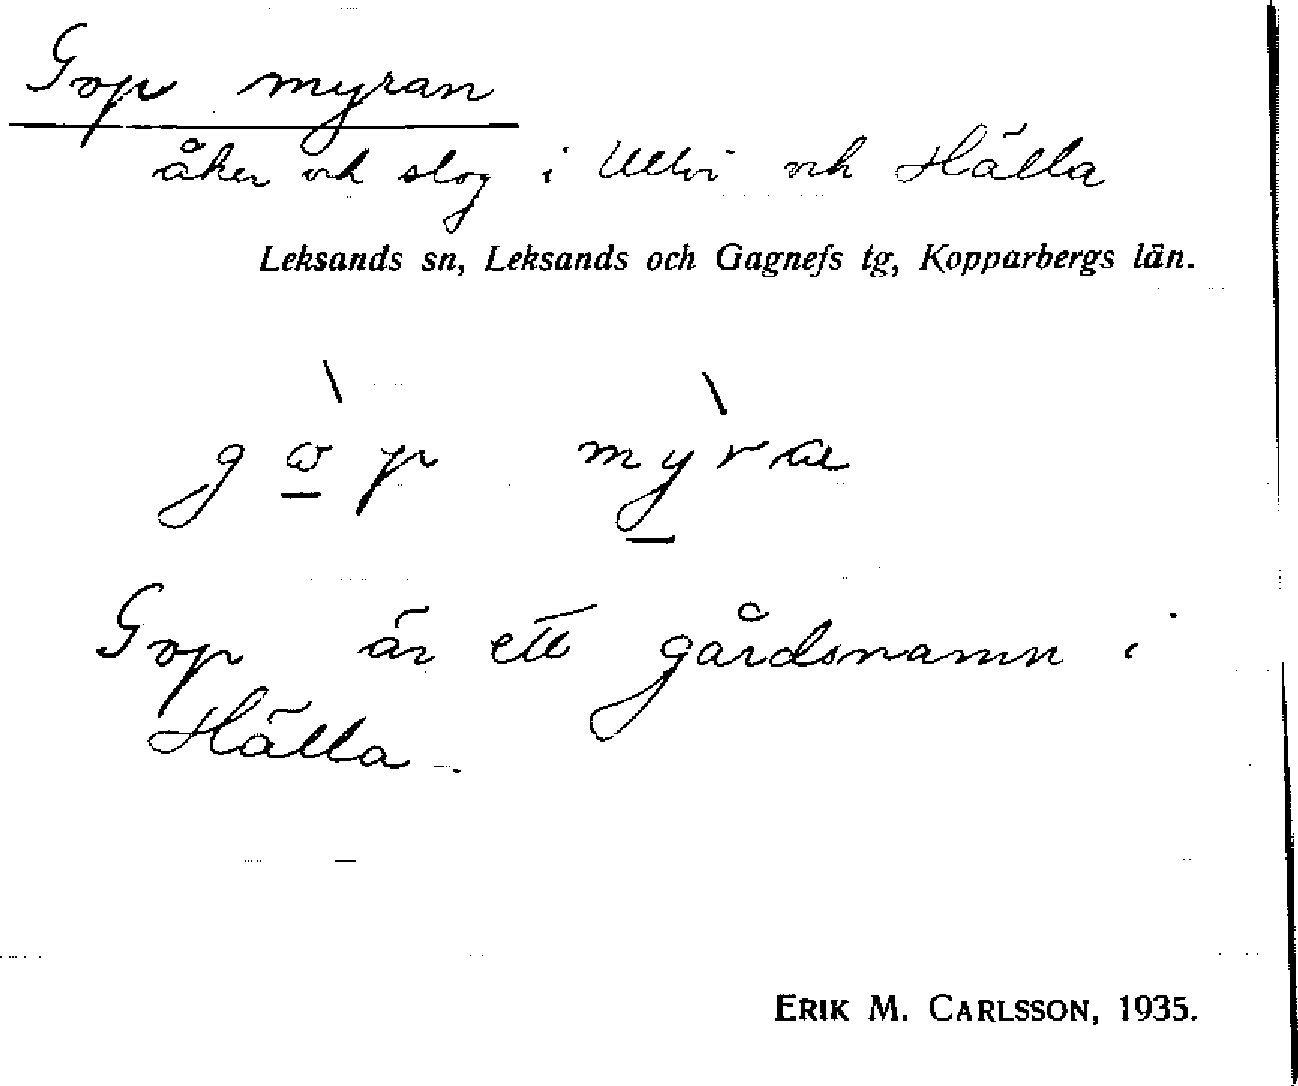 Gop myran
åker och slog i Ullvi och Hälla
Leksands sn, Leksands och Gagnefs tg, Kopparbergs län.
myra
Gop är ett gårdsnamn i
Hälla.
ERIK M. CARLSSON, 1935.